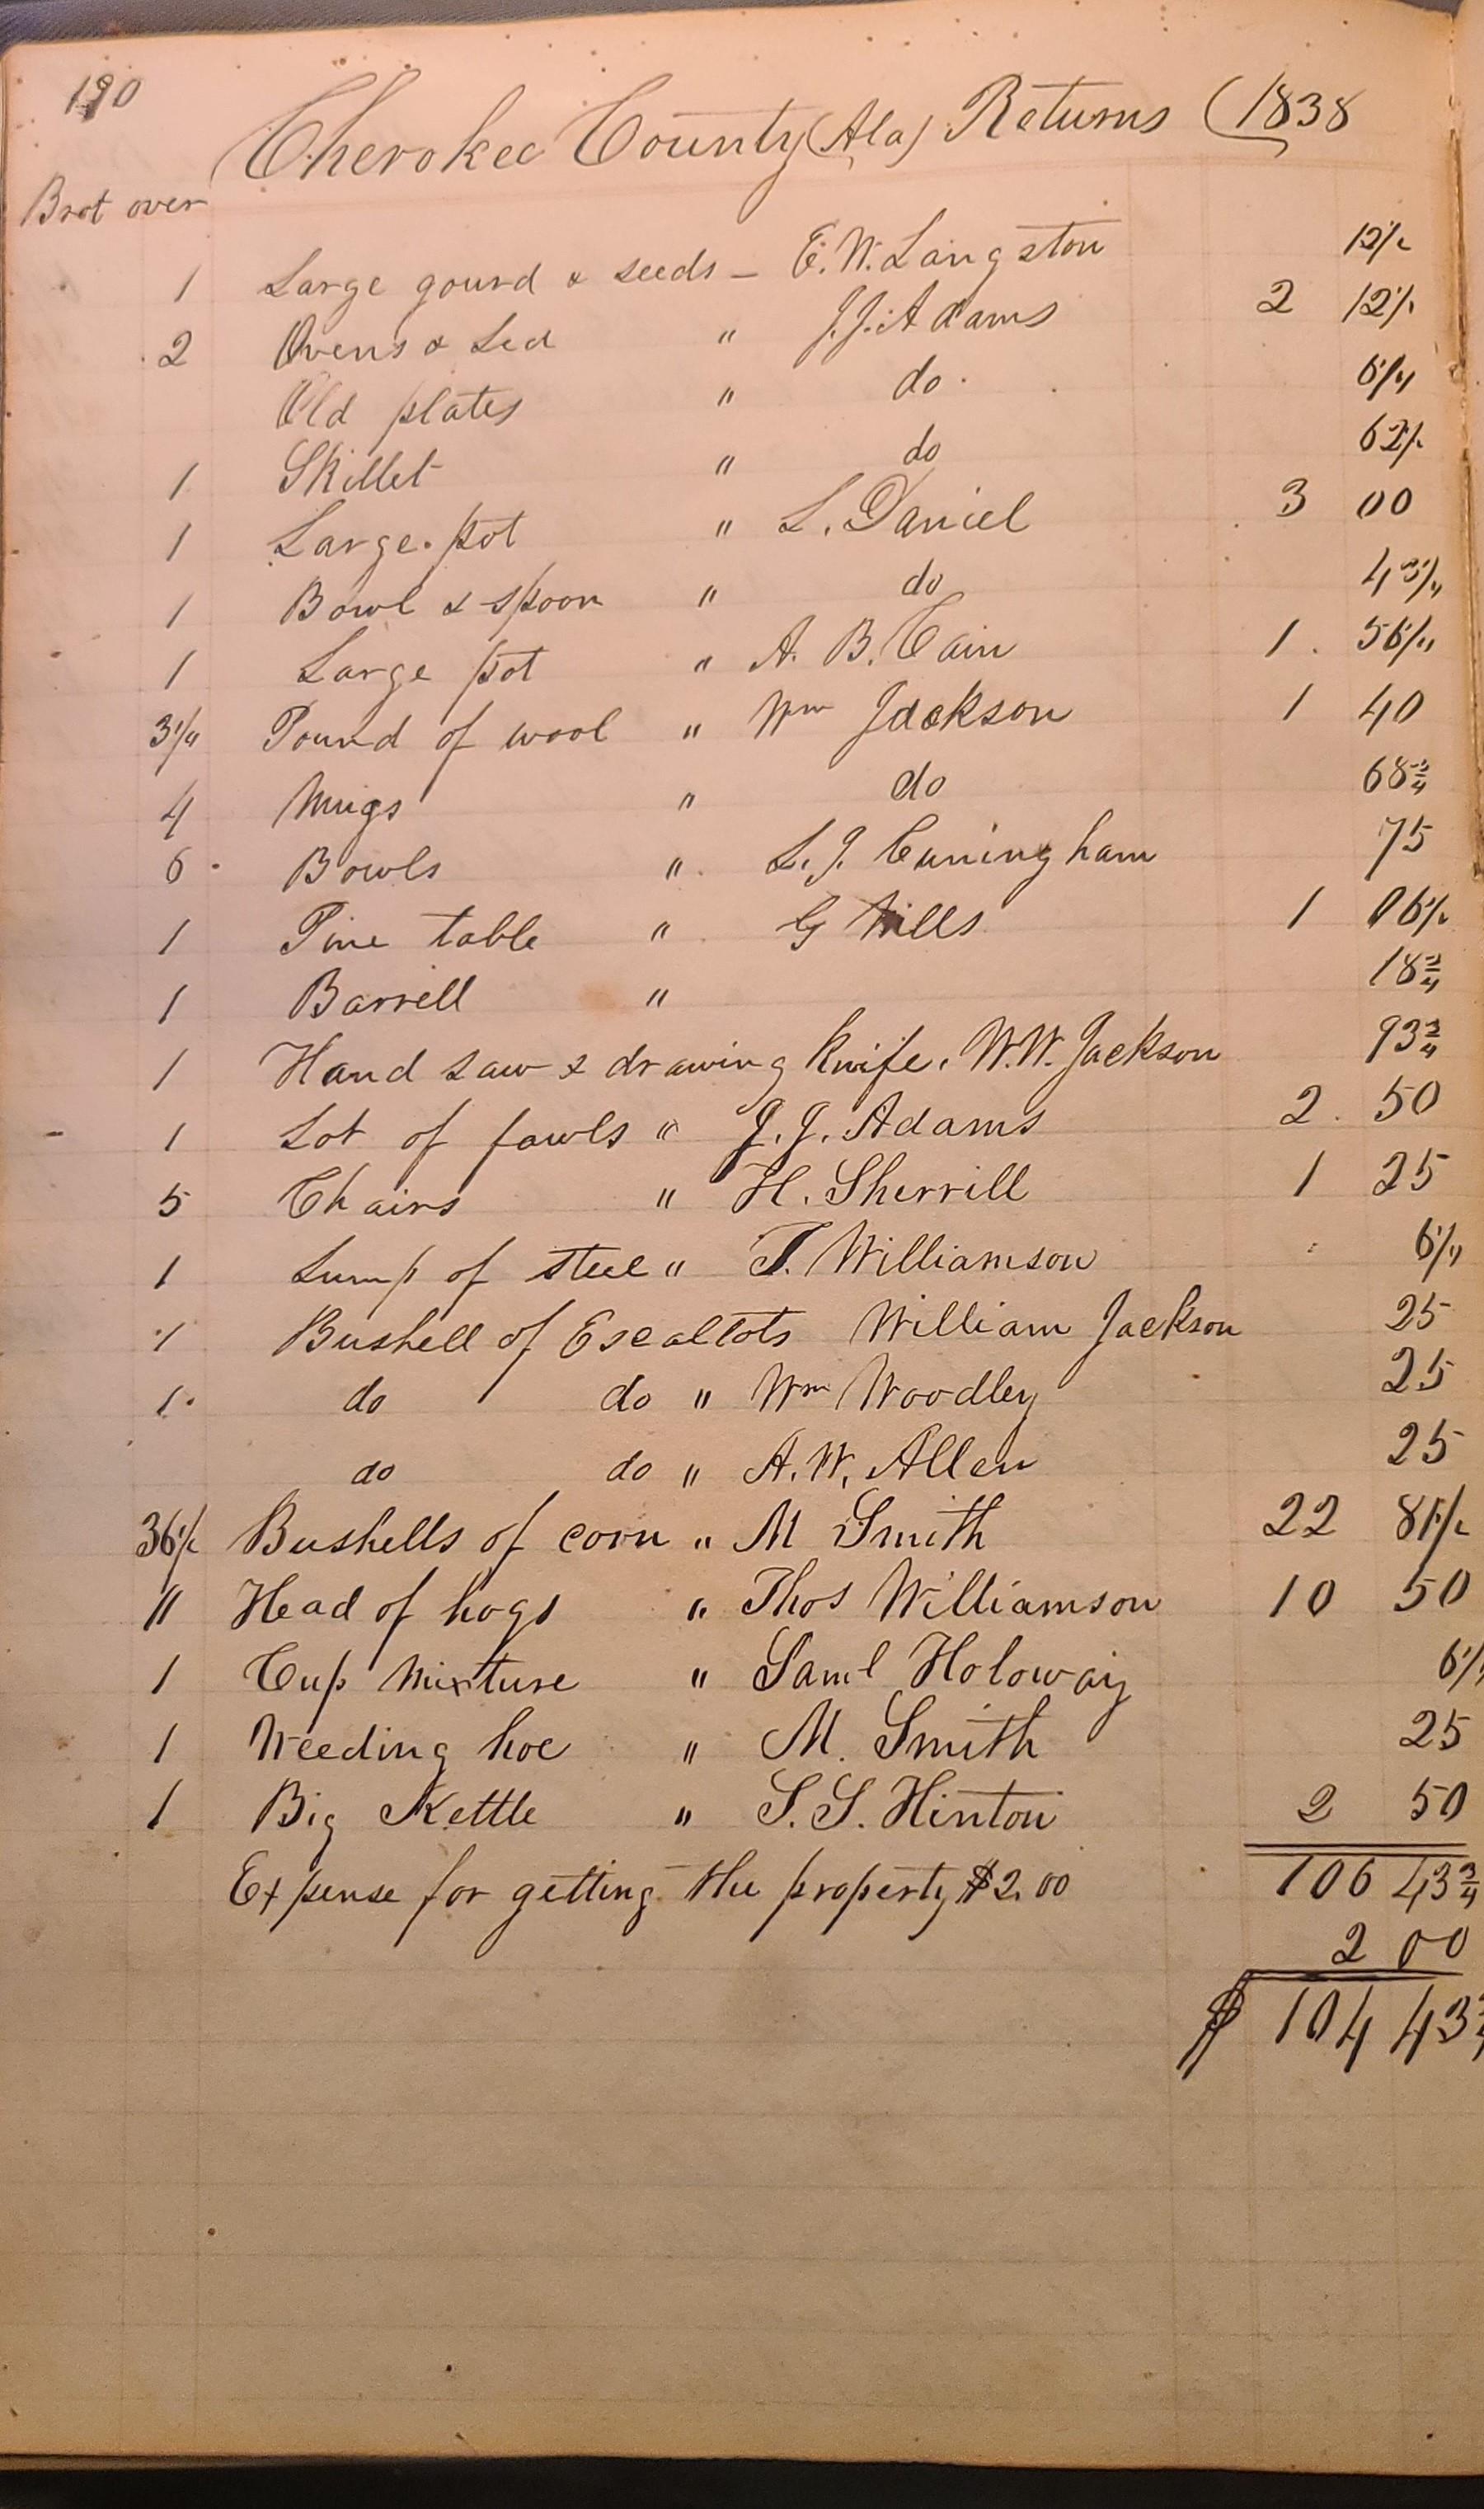 190
Cherokee County (Ala) Returns (1838
Brot over
1 Large gourd & seeds - E. W. Langston 12½
2 Ovens & Led " J. J. Adams 2 12½
Old plates " do 6¼
1 Skillet " do 62½
1 Large pot " L. Daniel 3 00
1 Bowl & spoon " do 43¾
1 Large pot " A. B. Cain 1 56¼
3¼ Pound of wool " Wm Jackson 1 40
4 Mugs " do 68¾
6 Bowls " L. J. Cuningham 75
1 Pine table " G Mills 1 06½
1 Barrell " 18¾
1 Hand saw & drawing knife. W. W. Jackson 93¾
1 Lot of fowls " J. J. Adams 2 50
5 Chairs " H. Sherrill 1 25
1 Lump of steel " T. Williamson 6¼
1 Bushell of Escallots William Jackson 25
1 do do " Wm Woodley 25
do do " A. W. Allen 25
36½ Bushells of corn " M Smith 22 81½
11 Head of hogs " Thos Williamson 10 50
1 Cup Mixture " Saml Holoway 6¼
1 Weeding hoe " M. Smith 25
1 Big Kettle " S. S. Hinton 2 50
Expense for getting the property $2.00 106 43¾
2 00
$ 104 43¾